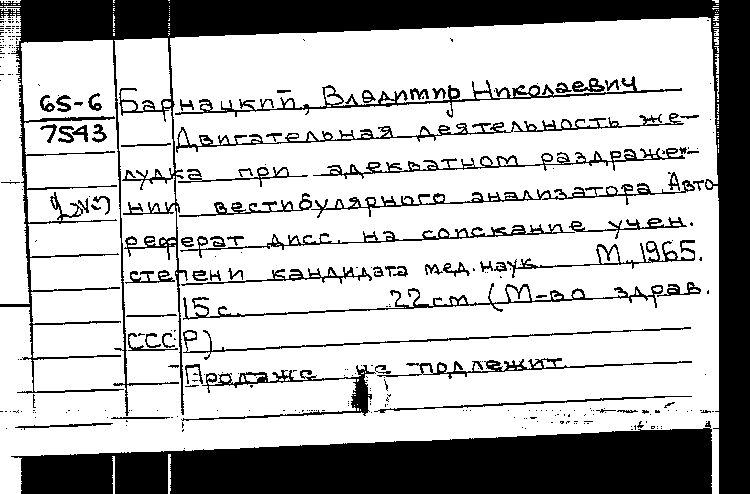 65-6 Барнацкий, Владимир Николаевич
7543 Двигательная деятельность же-
лудка при адекватном раздраже-
нии вестибулярного анализатора. Авто-
реферат дисс. на соискание учен.
степени кандидата мед. наук. М., 1965.
15 с. 22 см (М-во здрав.
СССР).
Продаже не подлежит